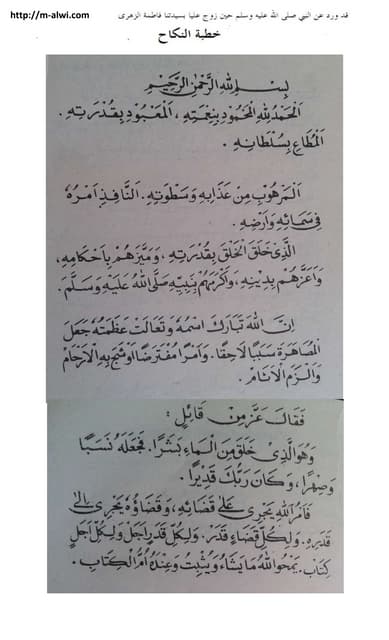 http://m-alwi.com
قد ورد عن النبي صلى الله عليه وسلم حين زوج عليا بسيدتنا فاطمة الزهرى
خطبة النكاح
بِسْمِ اللهِ الرَّحْمٰنِ الرَّحِيْمِ
اَلْحَمْدُ لِلّٰهِ الْمَحْمُوْدِ بِنِعْمَتِهِ ، اَلْمَعْبُوْدِ بِقُدْرَتِهِ .
اَلْمُطَاعِ بِسُلْطَانِهِ .
اَلْمَرْهُوْبِ مِنْ عَذَابِهِ وَسَطْوَتِهِ . اَلنَّافِذِ اَمْرُهُ
فِى سَمَائِهِ وَاَرْضِهِ .
اَلَّذِى خَلَقَ الْخَلْقَ بِقُدْرَتِهِ ، وَمَيَّزَهُمْ بِاَحْكَامِهِ ،
وَاَعَزَّهُمْ بِدِيْنِهِ ، وَاَكْرَمَهُمْ بِنَبِيِّهِ صَلَّى اللهُ عَلَيْهِ وَسَلَّمَ .
اِنَّ اللهَ تَبَارَكَ اسْمُهُ وَتَعَالَتْ عَظَمَتُهُ جَعَلَ
الْمُصَاهَرَةَ سَبَبًا لَاحِقًا . وَاَمْرًا مُفْتَرَضًا اَوْشَجَ بِهِ الْاَرْحَامَ
وَاَلْزَمَ الْاَنَامَ .
فَقَالَ عَزَّ مِنْ قَائِلٍ :
وَهُوَ الَّذِى خَلَقَ مِنَ الْمَاءِ بَشَرًا . فَجَعَلَهُ نَسَبًا
وَصِهْرًا ، وَكَانَ رَبُّكَ قَدِيْرًا .
فَاَمْرُ اللهِ يَجْرِى عَلَى قَضَائِهِ ، وَقَضَاؤُهُ يَجْرِى اِلَى
قَدَرِهِ . وَلِكُلِّ قَضَاءٍ قَدَرٌ . وَلِكُلِّ قَدَرٍ اَجَلٌ وَلِكُلِّ اَجَلٍ
كِتَابٌ . يَمْحُو اللهُ مَا يَشَاءُ وَيُثْبِتُ وَعِنْدَهُ اُمُّ الْكِتَابِ .